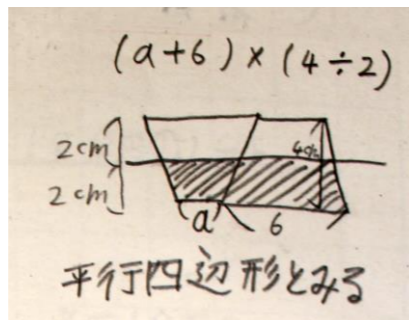 (a+6)×(4÷2)
2cm
4cm
2cm
a
6
平行四辺形とみる